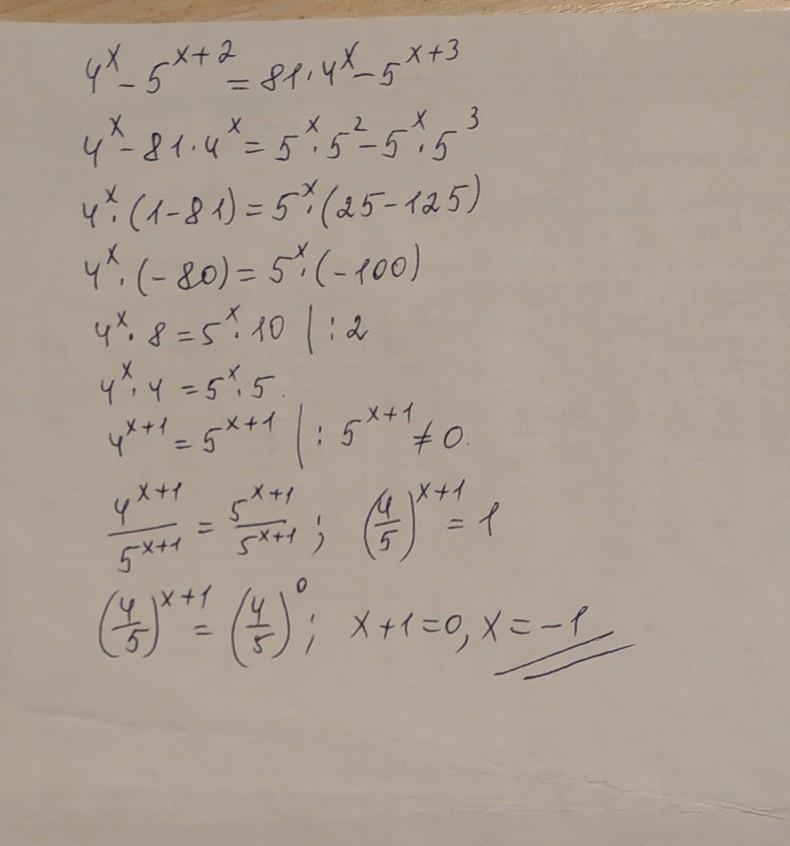 4^x - 5^{x+2} = 81 · 4^x - 5^{x+3}
4^x - 81 · 4^x = 5^x · 5^2 - 5^x · 5^3
4^x · (1 - 81) = 5^x · (25 - 125)
4^x · (- 80) = 5^x · (- 100)
4^x · 8 = 5^x · 10 | : 2
4^x · 4 = 5^x · 5.
4^{x+1} = 5^{x+1} | : 5^{x+1} ≠ 0.
\frac{4^{x+1}}{5^{x+1}} = \frac{5^{x+1}}{5^{x+1}} ; (\frac{4}{5})^{x+1} = 1
(\frac{4}{5})^{x+1} = (\frac{4}{5})^0 ; x + 1 = 0, x = - 1